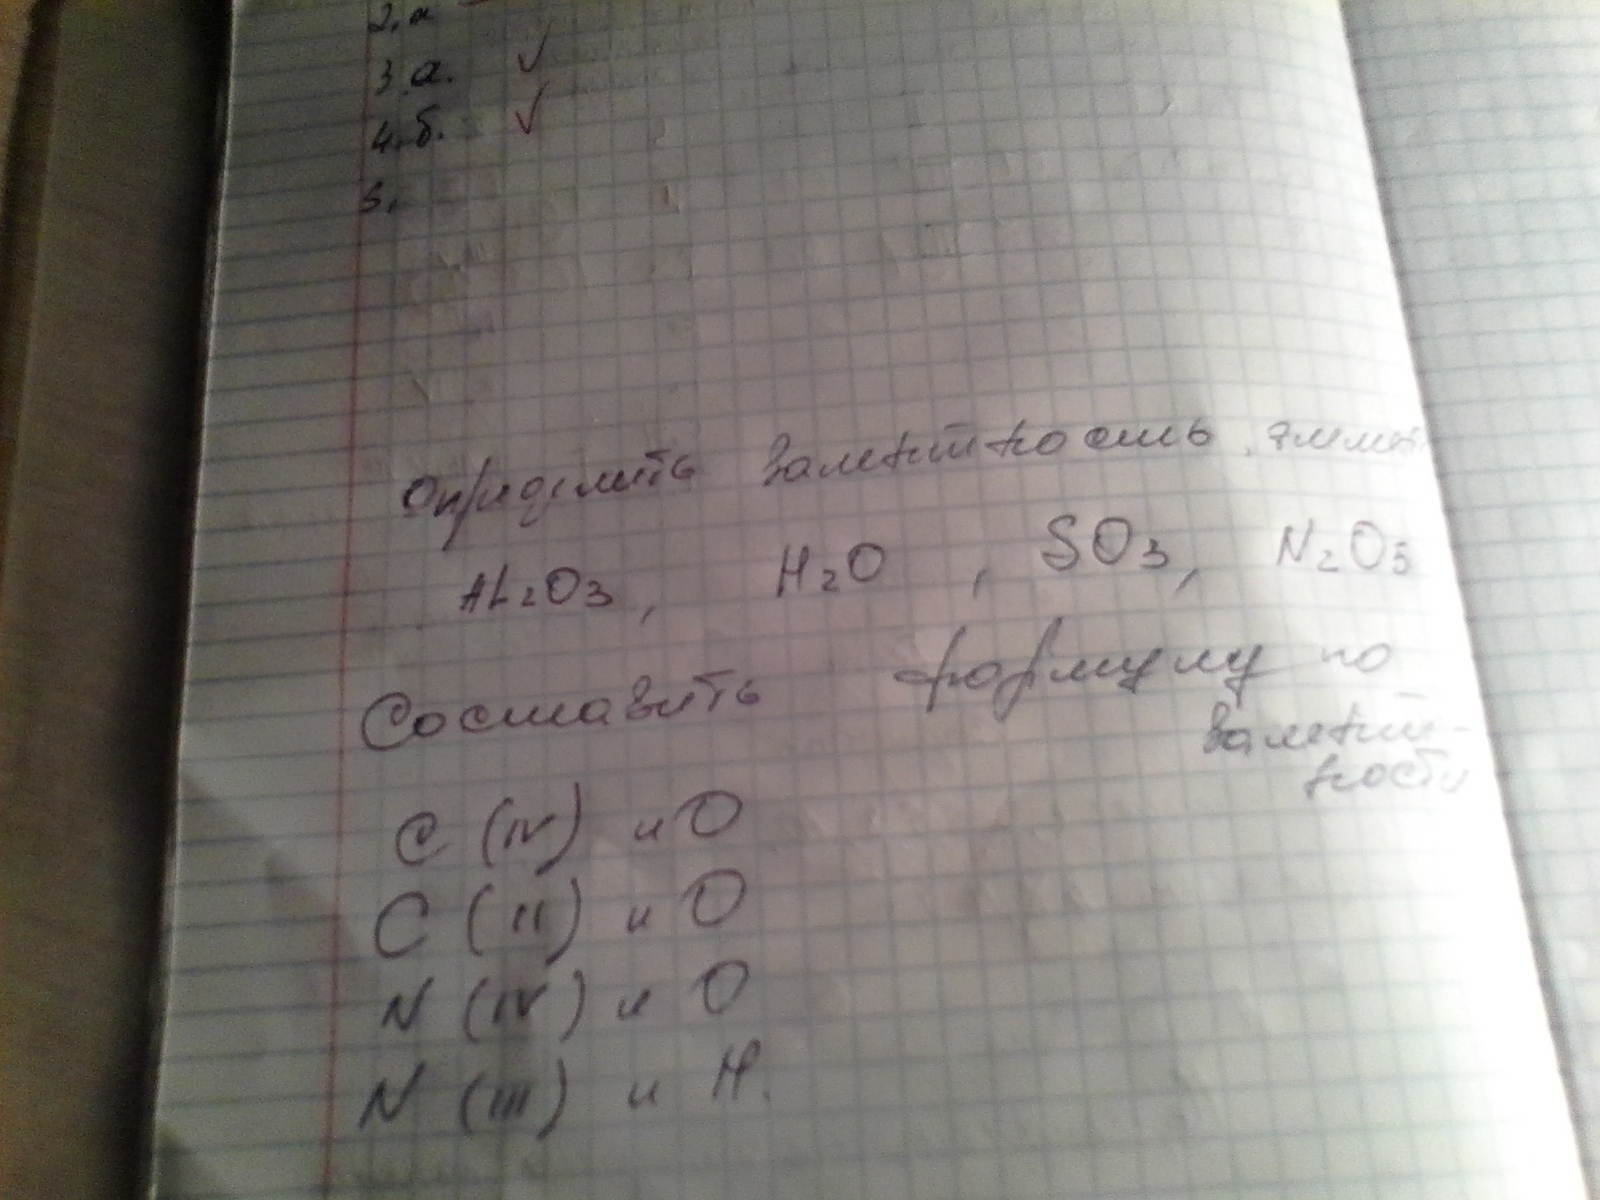 2. а
3 а. ✓
4. б. ✓
5.
Определить валентность
AL₂O₃, H₂O, SO₃, N₂O₅
Составить формулу по
валент-
ности
C (IV) и O
C (II) и O
N (IV) и O
N (III) и H.